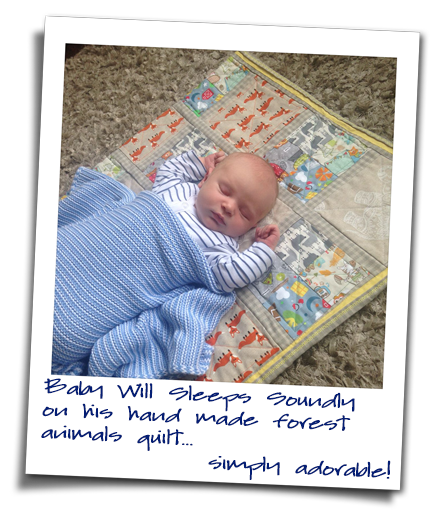 Baby Will Sleeps Soundly
on his hand made forest
animals quilt...
simply adorable!